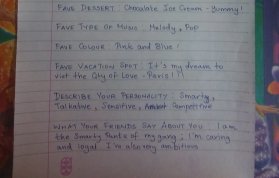 FAVE DESSERT: Chocolate Ice Cream - Yummy!
FAVE TYPE OF MUSIC: Melody, Pop
FAVE COLOUR: Pink and Blue!
FAVE VACATION SPOT: It's my dream to
visit the City of Love - Paris!
DESCRIBE YOUR PERSONALITY: Smarty,
Talkative, Sensitive, Competitive
WHAT YOUR FRIENDS SAY ABOUT YOU: I am
the Smarty Pants of my gang; I'm caring
and loyal. I'm also very ambitious